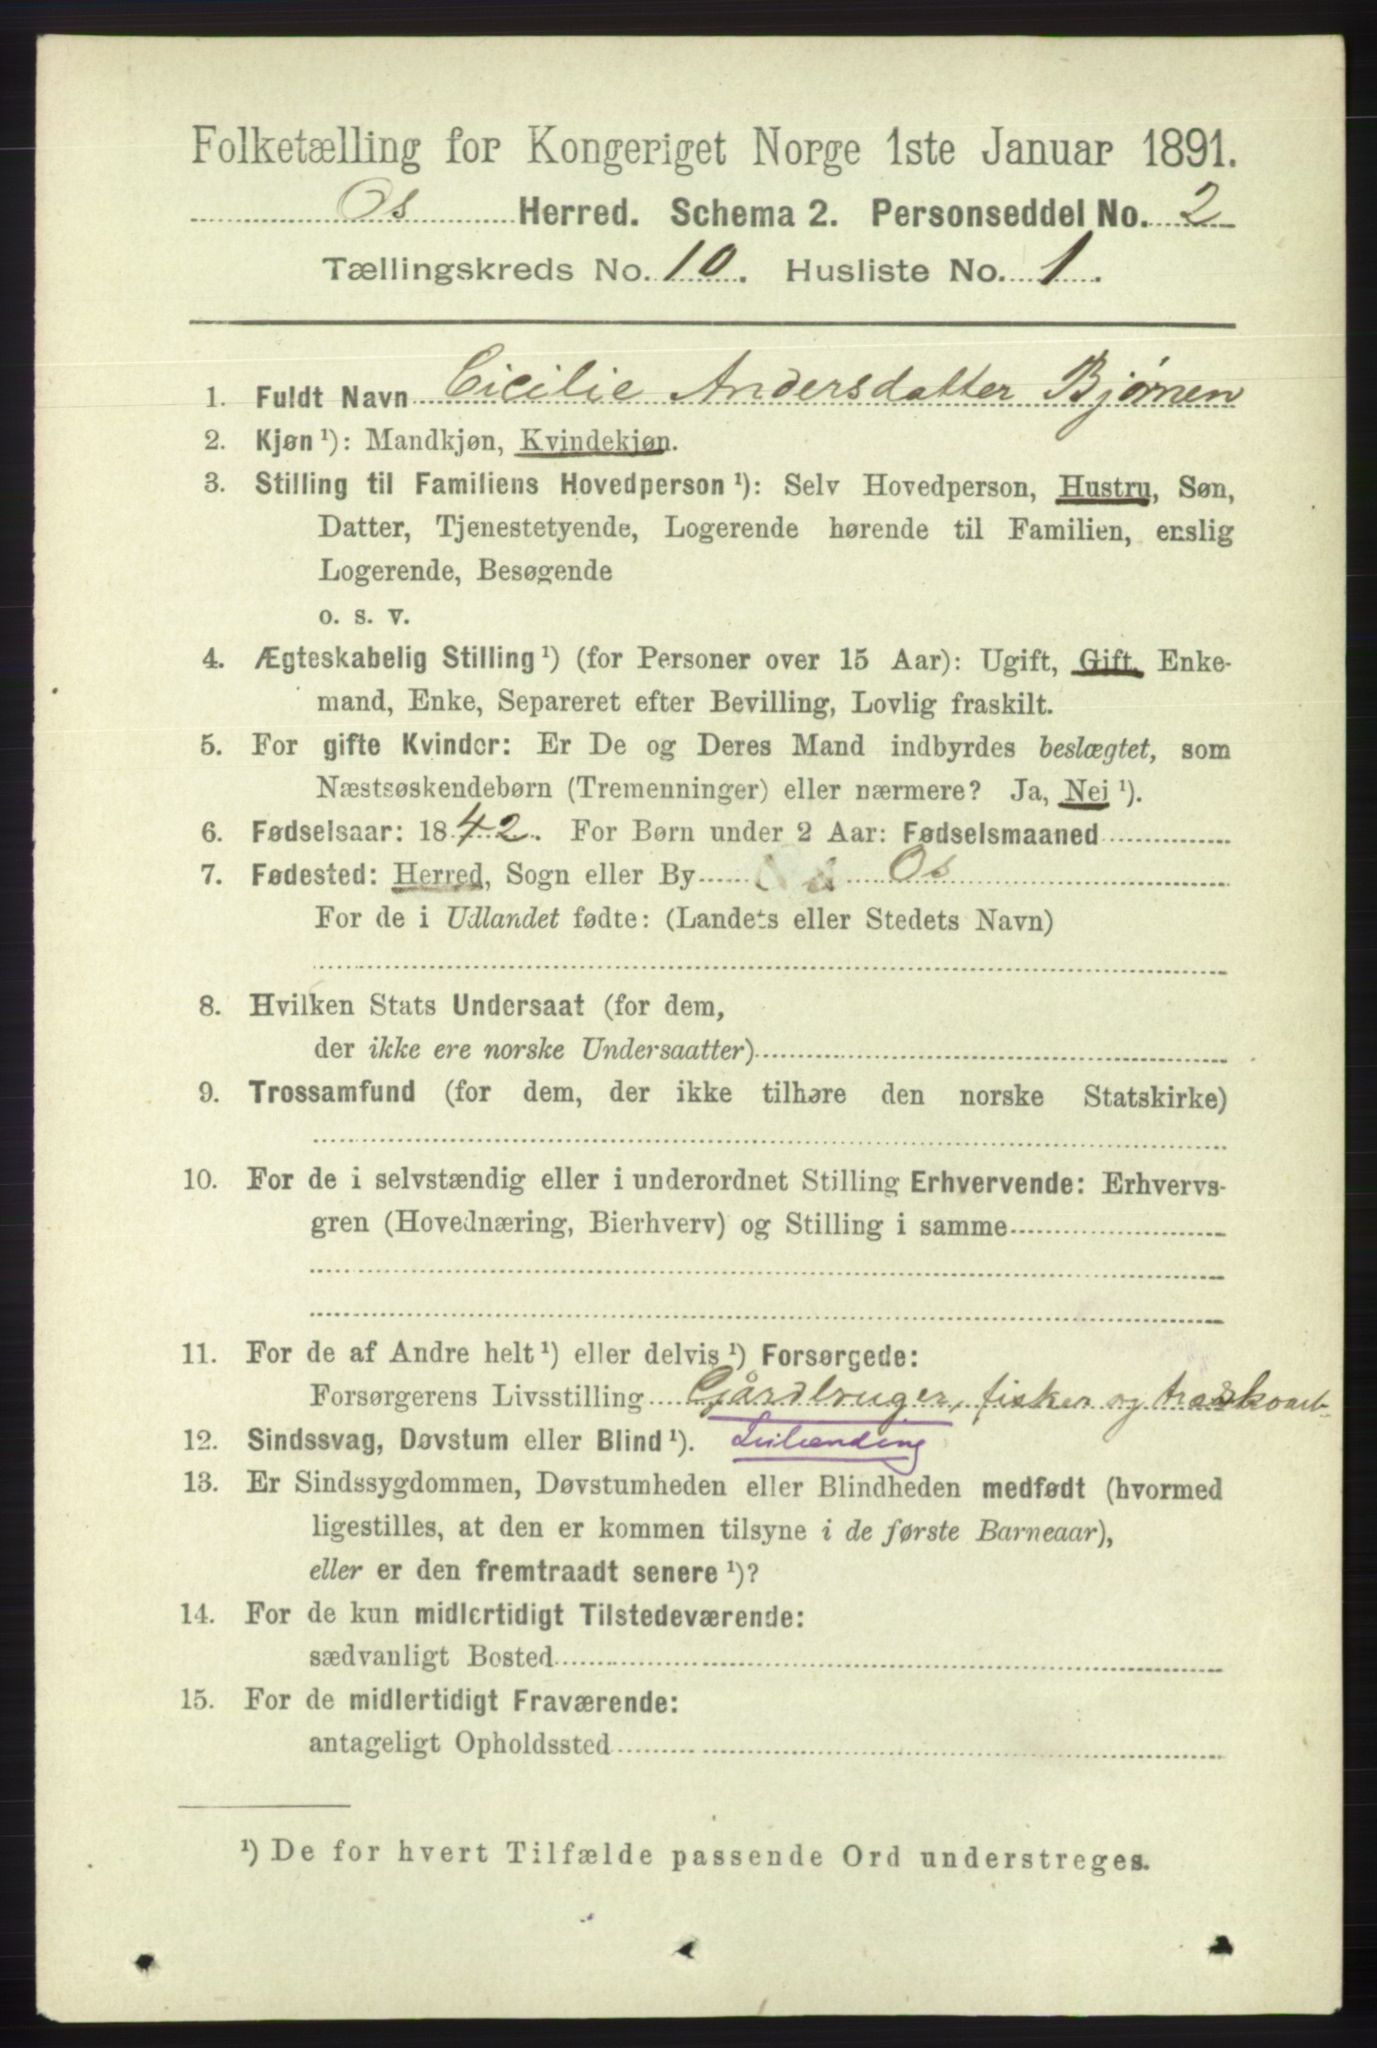 Folketælling for Kongeriget Norge 1ste Januar 1891.
Os Herred. Schema 2. Personseddel No. 2
Tællingskreds No. 10. Husliste No. 1.
1. Fuldt Navn Cicilie Andersdatter Bjørnen
2. Kjøn ¹): Mandkjøn, Kvindekjøn.
3. Stilling til Familiens Hovedperson ¹): Selv Hovedperson, Hustru, Søn,
Datter, Tjenestetyende, Logerende hørende til Familien, enslig
Logerende, Besøgende
o. s. v.
4. Ægteskabelig Stilling ¹) (for Personer over 15 Aar): Ugift, Gift, Enke-
mand, Enke, Separeret efter Bevilling, Lovlig fraskilt.
5. For gifte Kvinder: Er De og Deres Mand indbyrdes beslægtet, som
Næstsøskendebørn (Tremenninger) eller nærmere? Ja, Nei ¹).
6. Fødselsaar: 1842. For Børn under 2 Aar: Fødselsmaaned
7. Fødested: Herred, Sogn eller By Os
For de i Udlandet fødte: (Landets eller Stedets Navn)
8. Hvilken Stats Undersaat (for dem,
der ikke ere norske Undersaatter)
9. Trossamfund (for dem, der ikke tilhøre den norske Statskirke)
10. For de i selvstændig eller i underordnet Stilling Erhvervende: Erhvervs-
gren (Hovednæring, Bierhverv) og Stilling i samme
11. For de af Andre helt ¹) eller delvis ¹) Forsørgede:
Forsørgerens Livsstilling Gårdbruger, fisker og
12. Sindssvag, Døvstum eller Blind ¹). Leilænding
13. Er Sindssygdommen, Døvstumheden eller Blindheden medfødt (hvormed
ligestilles, at den er kommen tilsyne i de første Barneaar),
eller er den fremtraadt senere ¹)?
14. For de kun midlertidigt Tilstedeværende:
sædvanligt Bosted
15. For de midlertidigt Fraværende:
antageligt Opholdssted
¹) De for hvert Tilfælde passende Ord understreges.